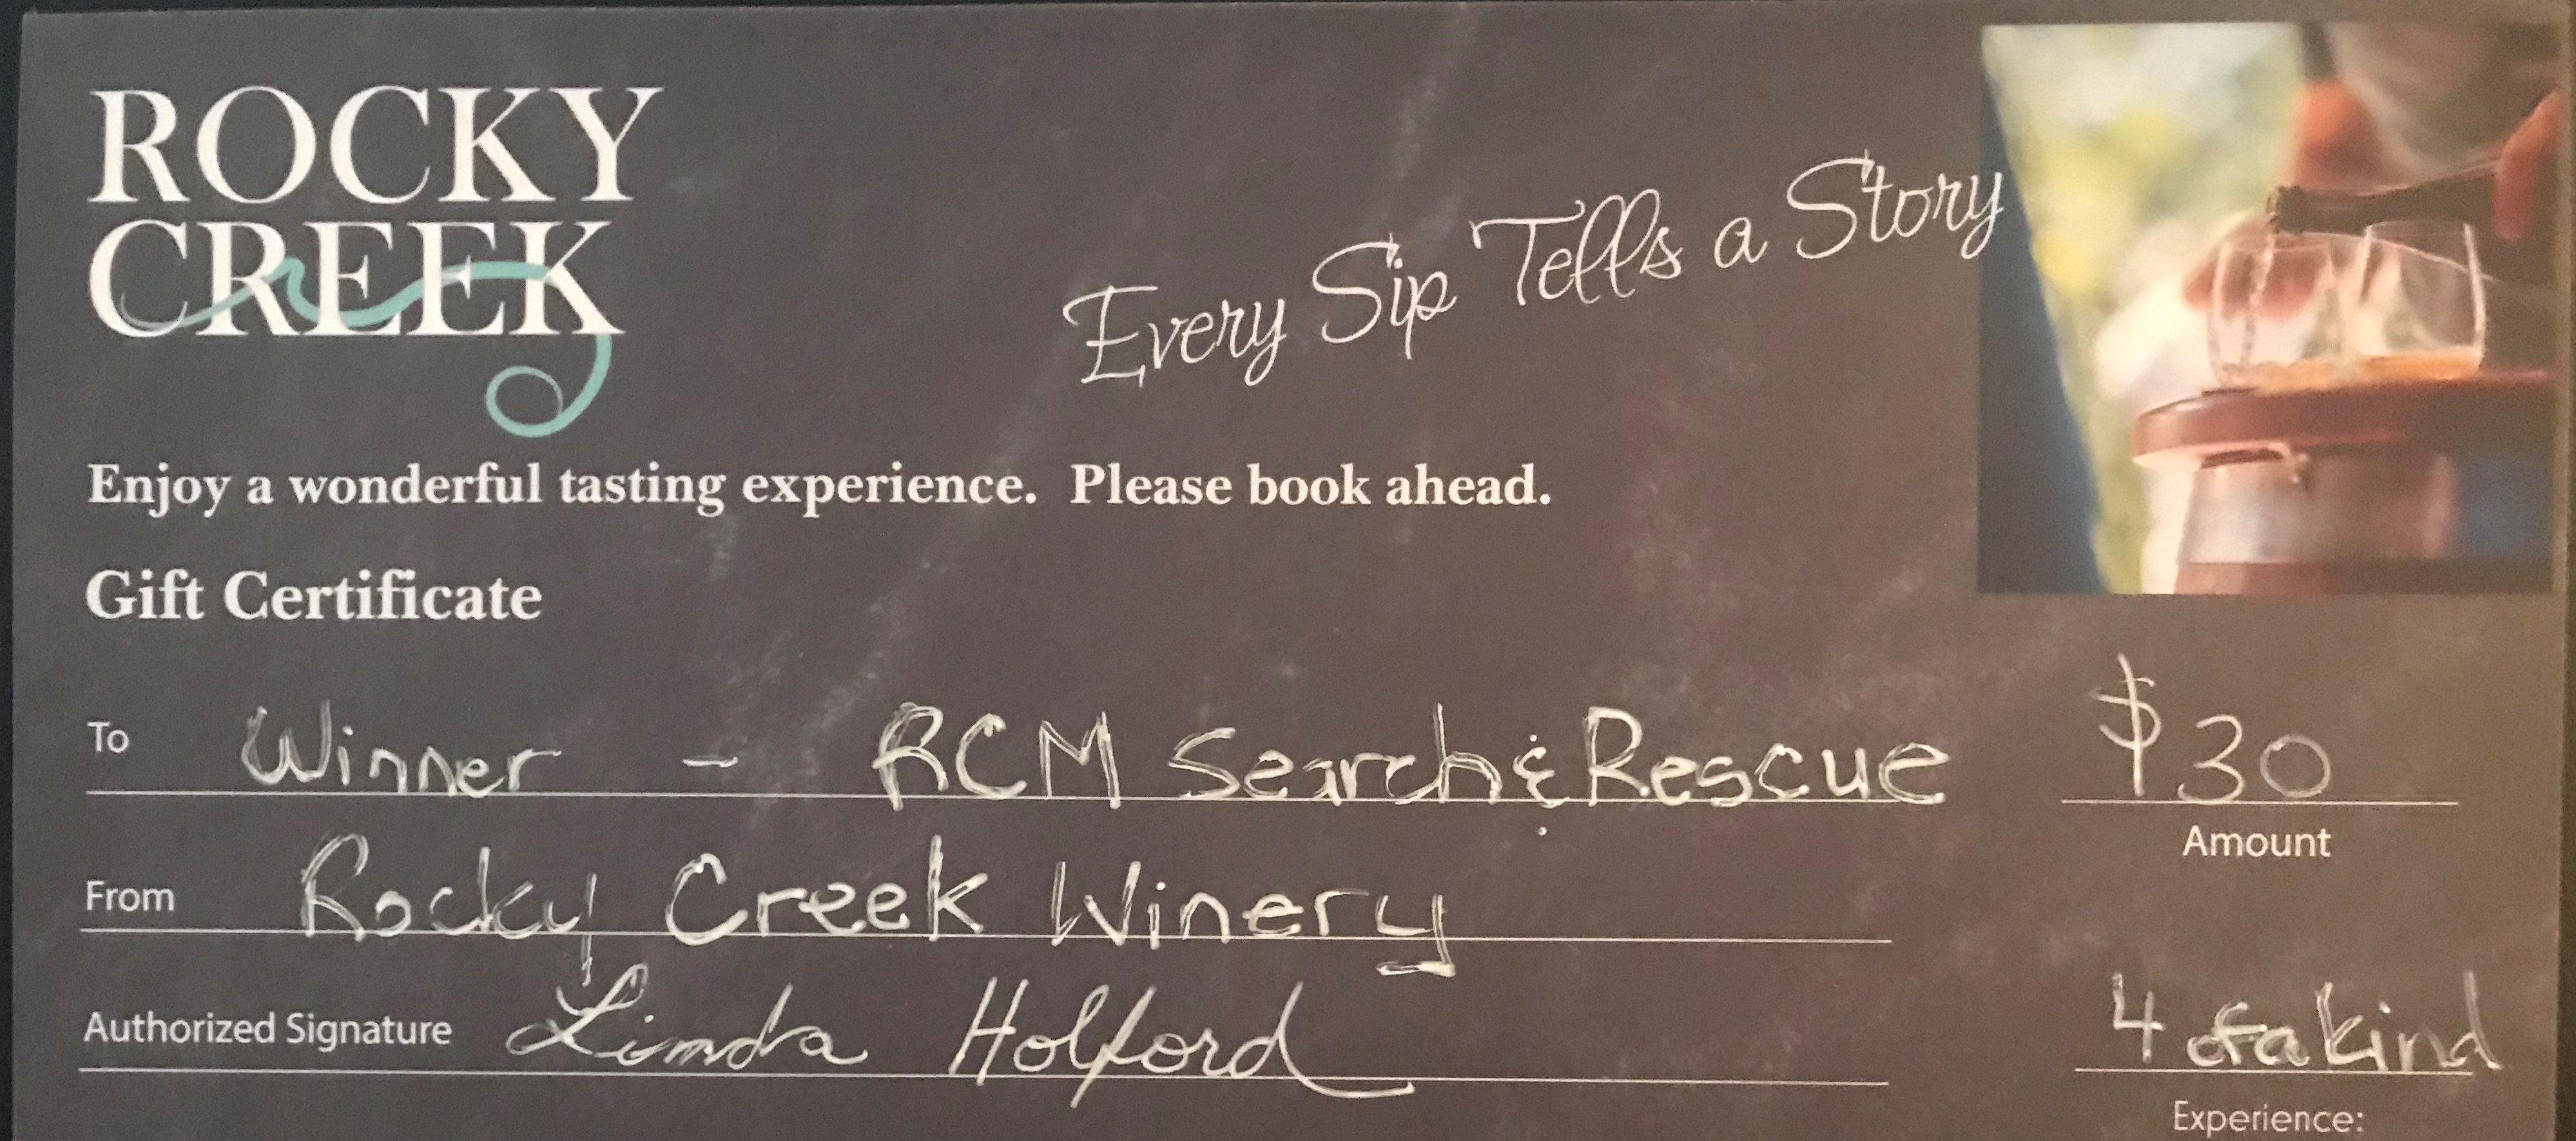 ROCKY
CREEK
Every Sip Tells a Story
Enjoy a wonderful tasting experience. Please book ahead.
Gift Certificate
To Winner - RCM Search & Rescue $30
Amount
From Rocky Creek Winery
Authorized Signature Linda Holford 4 of a kind
Experience: